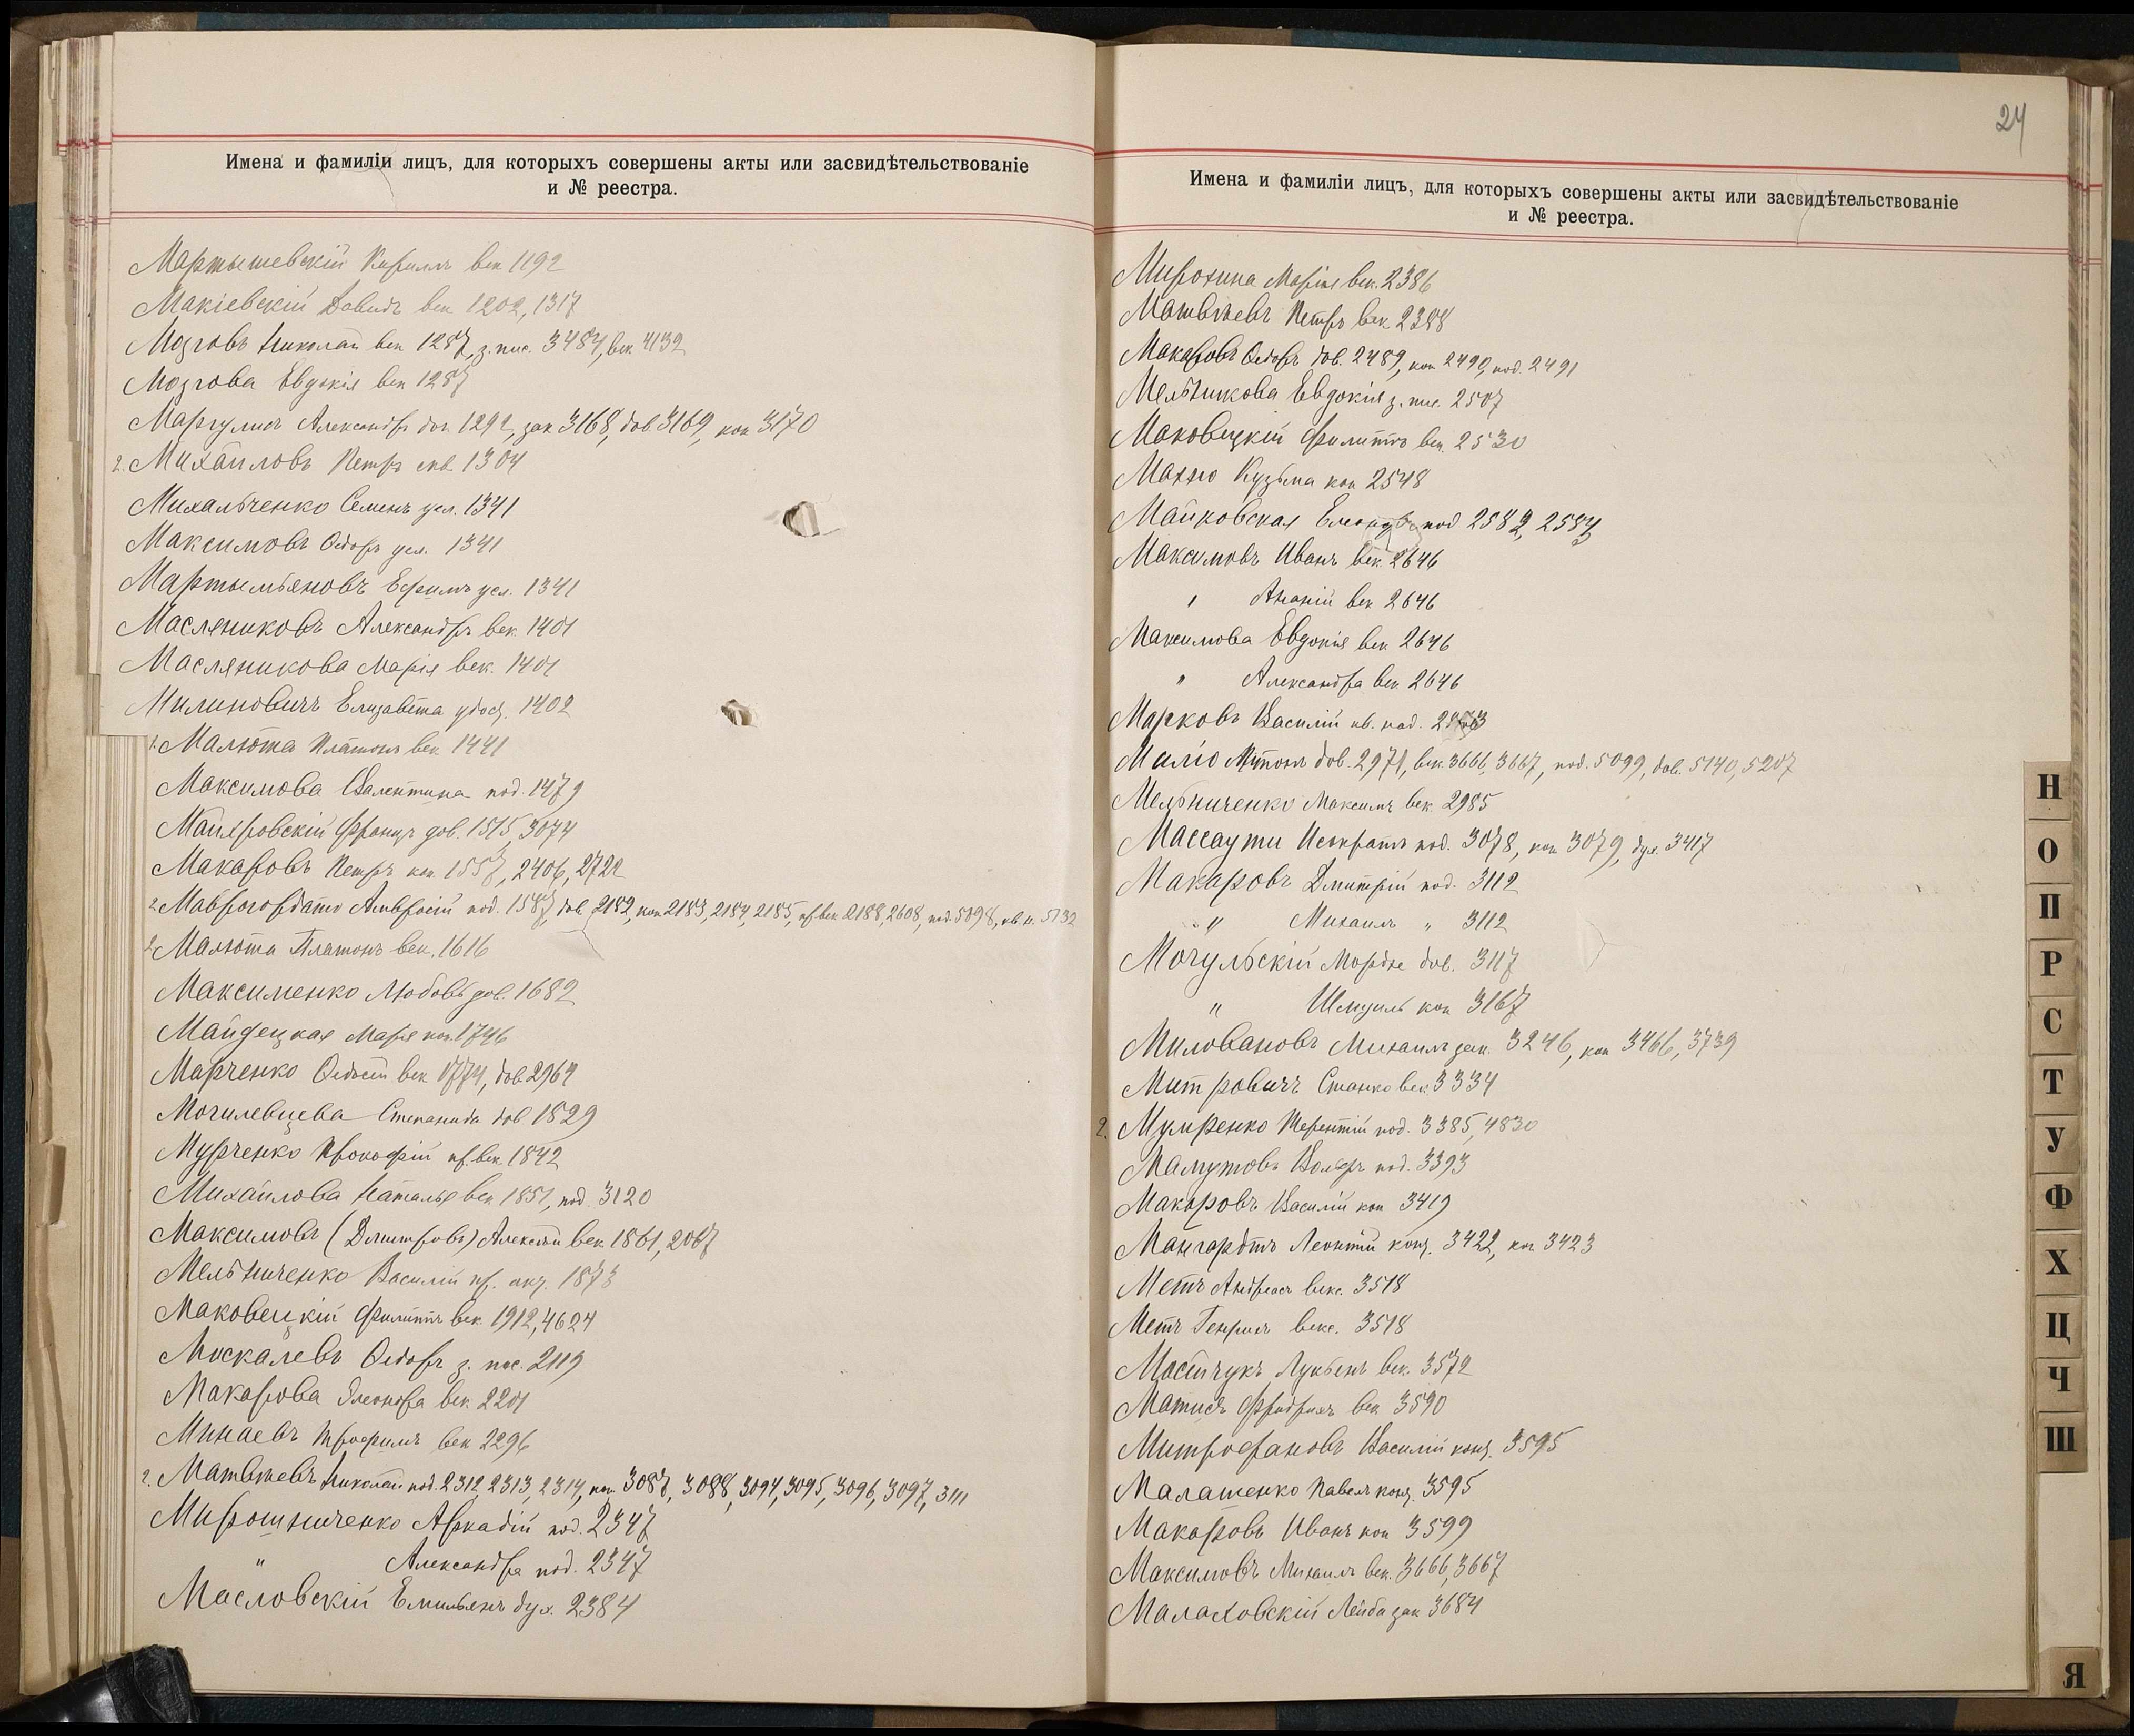 Имена и фамиліи лицъ, для которыхъ совершены акты или засвидѣтельствованіе
и № реестра.
Мартышевскій Кириллъ век 1192
Макіевскій Давидъ век 1202, 1317
Мозговъ Николай век 1257, з. пис. 3484, век 4132
Мозгова Евдокія век 1257
Маргулисъ Александръ дог. 1292, зак 3168, дов 3169, коп 3170
2. Михайловъ Петръ скв. 1304
Михальченко Семенъ усл. 1341
Максимовъ Ѳедоръ усл. 1341
Мартемьяновъ Ефимъ усл. 1341
Маслениковъ Александръ век. 1401
Масляникова Марія век. 1401
Милиновичъ Елизавета удост. 1402
1. Малюта Платонъ век 1441
Максимова Валентина под. 1479
Францъ дов. 1515, 3074
Макаровъ Петръ коп. 1557, 2406, 2722
2 Маврогордато Амвросій под. 1587, дов. 2182, коп 2183, 2184, 2185, пр. век 2188, 2608, под. 5098, кв. н. 5132
2. Малюта Платонъ век. 1616
Максименко Любовь дов. 1682
Майдецкая Марія коп. 1746
Марченко Ѳедосій век 1774, дов. 2964
Могилевцева Степанида дов 1829
Мурченко Прокофій пр. век. 1842
Михайлова Наталья век 1851, под. 3120
Максимовъ (Дмитровъ) Алексѣй век. 1861, 2067
Мельниченко Василій пр. акц. 1873
Маковецкій Филиппъ век. 1912, 4624
Москалевъ Ѳедоръ з. пос. 2119
Макарова Элеонора век. 2201
Минаевъ Трофимъ век 2296
2. Матвѣевъ Николай под. 2312, 2313, 2314, коп 3087, 3088, 3094, 3095, 3096, 3097, 3111
Мирошниченко Аркадій под. 2347
" Александра под. 2347
Масловскій Емильянъ дух. 2384
24
Имена и фамиліи лицъ, для которыхъ совершены акты или засвидѣтельствованіе
и № реестра.
Мирохина Марія век. 2386
Матвѣевъ Петръ век 2388
Макаровъ Ѳедоръ дов. 2489, коп 2490, под. 2491
Мельникова Евдокія з. пис. 2507
Маковецкій Филиппъ век. 2530
Махно Кузьма коп 2548
Майковская под 2582, 2583
Максимовъ Иванъ век. 2646
" Ананій век 2646
Максимова Евдокія век 2646
" Александра век 2646
Марковъ Василій кв. над.
Мамо Антонъ дов. 2971, век. 3666, 3667, под. 5099, дов. 5140, 5207
Мельниченко Максимъ век 2985
Массаути Исократъ под. 3078, коп 3079, дух. 3417
Макаровъ Дмитрій под. 3112
" Михаилъ " 3112
Могульскій Мордхе дов. 3117
" Шмуль коп 3167
Миловановъ Михаилъ зак. 3246, коп 3466, 3739
Митровичъ Станко век. 3334
2. Мумренко Терентій под. 3385, 4830
Мамутовъ Вольфъ под. 3393
Макаровъ Василій коп 3419
Мангардтъ Леонтій конт. 3422, коп 3423
Метъ Андреасъ векс. 3518
Метъ Генрихъ векс. 3518
Мостичукъ Лукьянъ век. 3572
Матисъ Фридрихъ век 3590
Митрофановъ Василій конт. 3595
Малашенко Павелъ конт. 3595
Макаровъ Иванъ коп 3599
Максимовъ Михаилъ век. 3666, 3667
Малаховскій Лейба зак 3684
Н
О
П
Р
С
Т
У
Ф
Х
Ц
Ч
Ш
Я